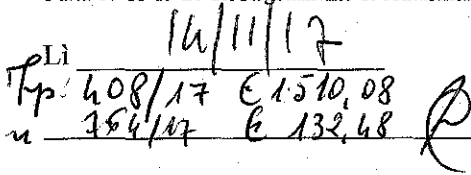 Lì 14/11/17
Typ: 408/17 € 1.510,08
" 764/17 € 132,48